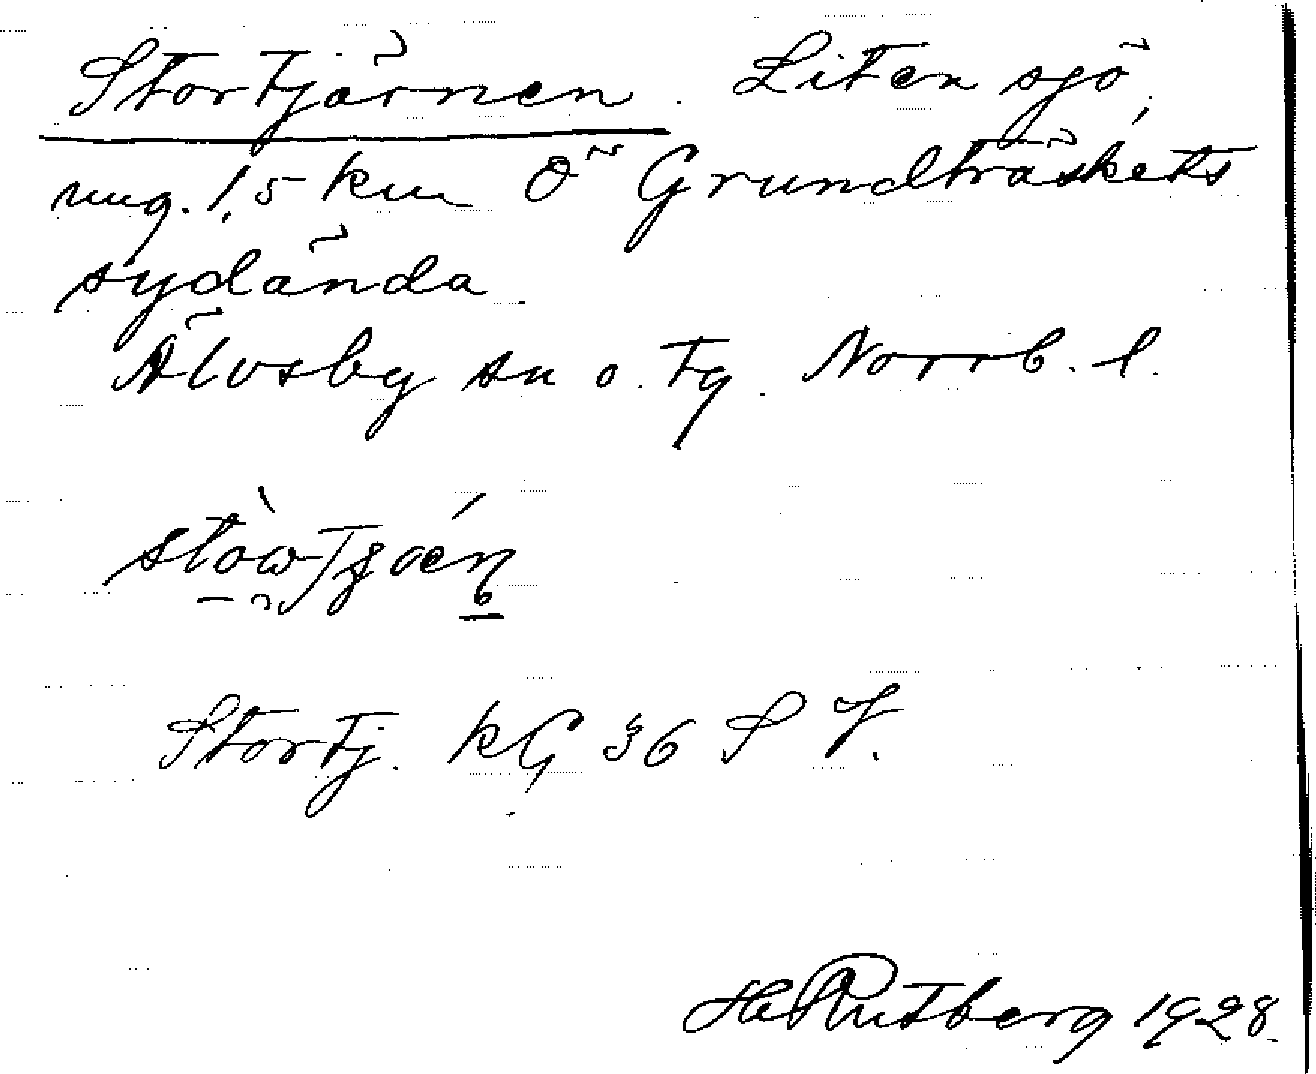 Stortjärnen. Liten sjö,
ung. 1,5 km Ö Grundträskets
sydända
Älvsby sn o. tg. Norrb. l.
Stortj. KG 36 S V.
H. Rutberg 1928.